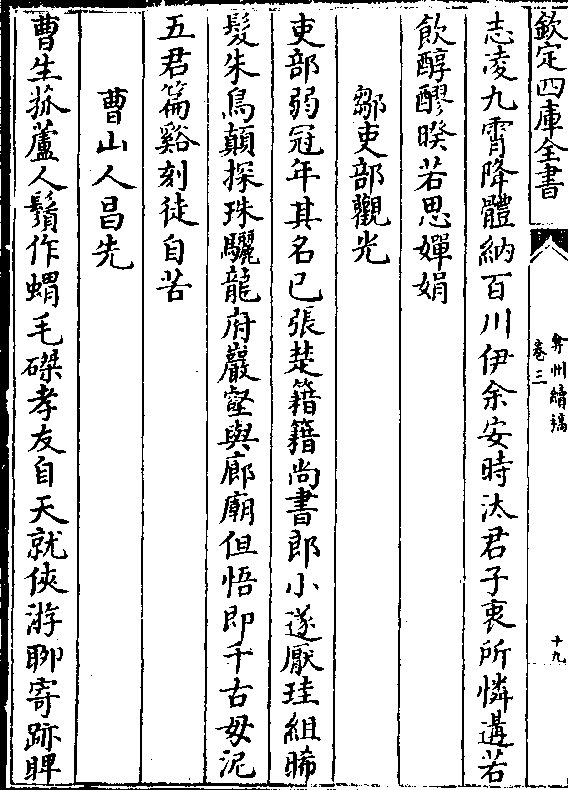 欽定四庫全書
弇州續稿
卷三
十九
志凌九霄降體納百川伊余安時汰君子衷所憐遘若
飲醇醪暌若思嬋娟
鄒吏部觀光
吏部弱冠年其名已張楚籍籍尚書郎小遂厭珪組晞
髮朱鳥顛探珠驪龍府巖壑與廊廟但悟即千古毋泥
五君篇谿刻徒自苦
曹山人昌先
曹生菰蘆人鬚作蝟毛磔孝友自天就俠游聊寄跡睥